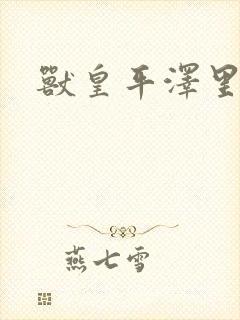 獸皇平澤里
燕七雪